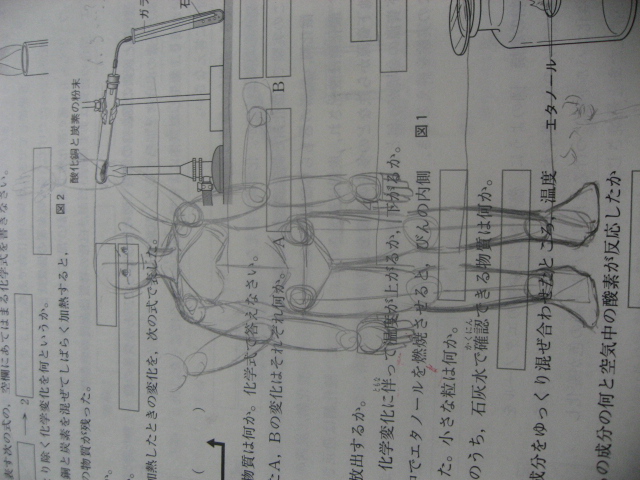 表す次の式の,空欄にあてはまる化学式を書きなさい。
→ 2
り除く化学変化を何というか。
銅と炭素を混ぜてしばらく加熱すると,
の物質が残った。
図2
酸化銅と炭素の粉末
ガラ
石
加熱したときの変化を,次の式で表した。
( )
物質は何か。化学式で答えなさい。
A,Bの変化はそれぞれ何か。
A
B
放出するか。
化学変化に伴って温度が上がるか,下がるか。
でエタノールを燃焼させると,びんの内側
図1
た。小さな粒は何か。
のうち,石灰水で確認できる物質は何か。
かくにん
エタノール
成分をゆっくり混ぜ合わせたところ,温度
の成分の何と空気中の酸素が反応したか